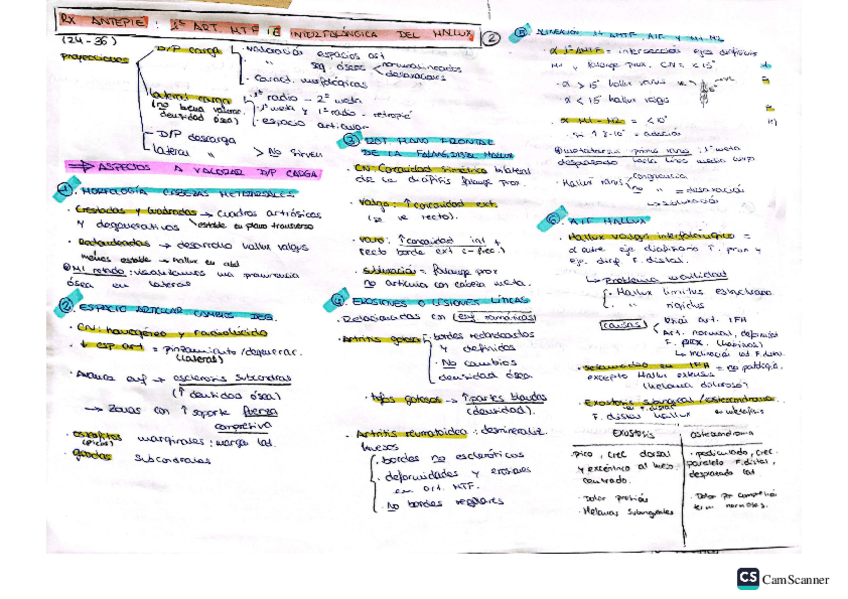 RX ANTEPIÉ : 1ª ART MTF | E INTERFALÁNGICA DEL HALLUX
(24-36)
②
proyecciones
D/P carga
valoración espacios art
" seg. óseos
normoalineados
desviaciones
Caract. morfológicas
lateral carga
(no buena valorac.
densidad ósea)
1º radio - 2º meta
1º meta y 1º radio - retropié
espacio articular
D/P descarga
lateral "
> No sirven
ASPECTOS A VALORAR D/P CARGA
① MORFOLOGÍA CABEZAS METATARSALES
· Crestadas y cuadradas → cuadros artrósicos
y degenerativos
estable en plano transverso
· Redondeadas → desarrollo hallux valgus
menos estable → hallux en abd
M1 rotado: visualizamos una prominencia
ósea en lateral
② ESPACIO ARTICULAR CAMBIOS DEG.
· CN: homogéneo y radiolúcido
· ↓ esp art = pinzamiento/degenerac.
(lateral)
· Avanza enf → esclerosis subcondral
(↑ densidad ósea)
→ Zonas con ↑ soporte fuerza
compresiva
· osteofitos marginales: margen lat.
(picos)
· geodas subcondrales
③ ROT PLANO FRONTAL
DE LA FALANG. DISTAL HALLUX
· CN: Concavidad simétrica bilateral
de la diáfisis falange prox.
· Valgo: ↑ concavidad ext.
(se ve recto).
· varo: ↑ concavidad int +
recto borde ext
· subluxación = falange prox
no articula con cabeza meta.
④ EROSIONES O LESIONES LÍTICAS
· Relacionadas con (enf reumáticas)
· Artritis gotosa
bordes redondeados
y definidos
· No cambios
densidad ósea
· tofos gotosos → ↑ partes blandas
(densidad).
· Artritis reumatoidea : desmineraliz.
huesos
· bordes no escleróticos
· deformidades y erosiones
en art. MTF.
· No bordes regulares
⑤ ALINEACIÓN 1ª AMTF, AIF Y M1-M2
· α 1ª AMTF = intersección ejes diafisarios
M1 y falange prox. CN = < 15°
· α > 15° hallux
· α < 15° hallux valgo
· α M1-M2 = < 10°
metatarsus primus varus : 1º meta
desplazado hacia línea media corp
· Hallux
congruencia
no "
= desviación
→ subluxación
⑥ AIF HALLUX
· Hallux valgus interfalángico =
α entre eje diafisario F. prox y
eje F. distal.
↳ Problema movilidad
· Hallux limitus estructurado
· " rígidus
causas
art. IFH
Art. normal, deformid
F. prox.
↳ Inclinación lat. F. dist.
· sesamoideo en IFH = no patológ.
excepto Hallux extensus
(Heloma doloroso)
· Exostosis subungueal / osteocondroma
F. distal hallux
EXOSTOSIS
· pico, crec dorsal
y excéntrico al hueso
· Dolor presión
OSTEOCONDROMA
· pediculado, crec.
paralelo F. distal,
desplazado lat.
· Dolor por compresión
term nerviosas.
CS CamScanner